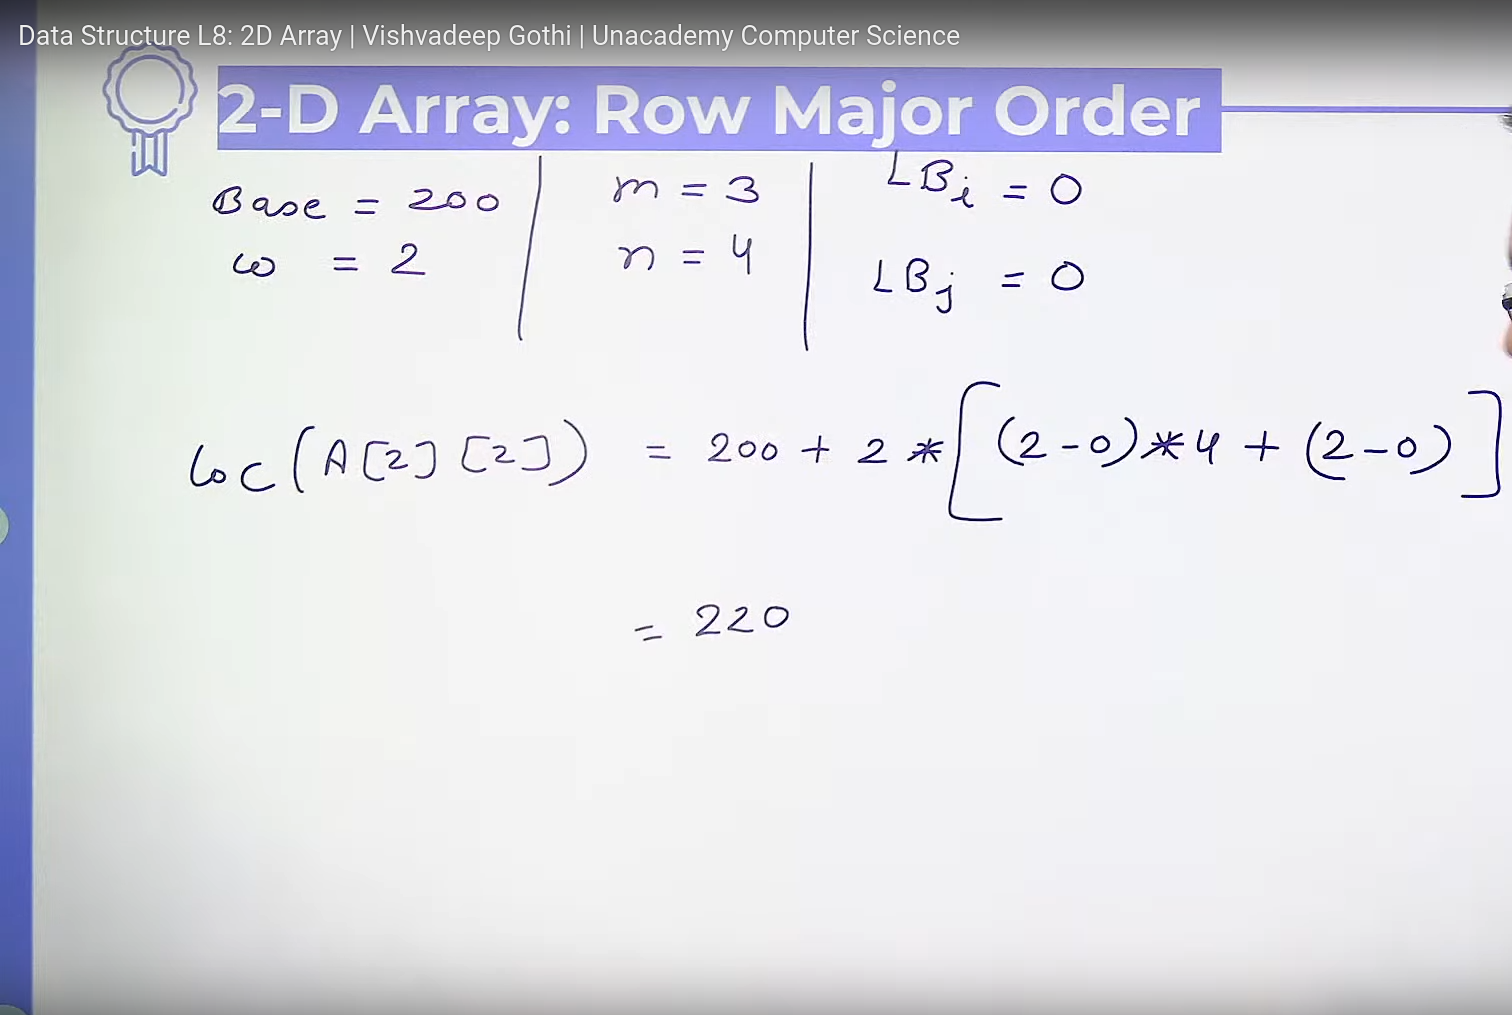 Data Structure L8: 2D Array | Vishvadeep Gothi | Unacademy Computer Science
2-D Array: Row Major Order
Base = 200
w = 2
m = 3
n = 4
LBi = 0
LBj = 0
Loc(A[2][2]) = 200 + 2 * [(2-0)*4 + (2-0)]
= 220